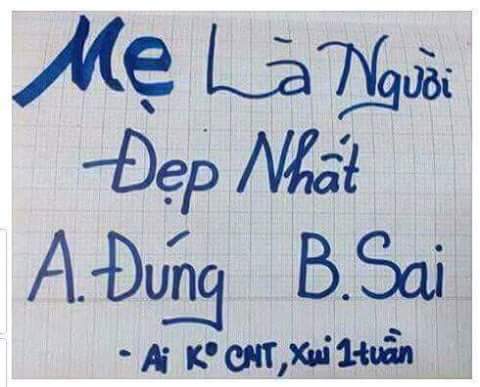 Mẹ Là Người
Đẹp Nhất
A. Đúng B. Sai
- Ai K° CMT, Xui 1 tuần